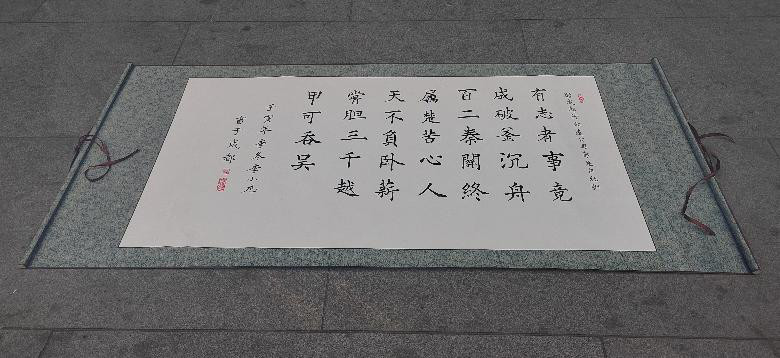 有志者事竟
成破釜沉舟
百二秦關終
屬楚苦心人
天不負卧薪
嘗胆三千越
甲可吞吴
年季冬李小
書于成都